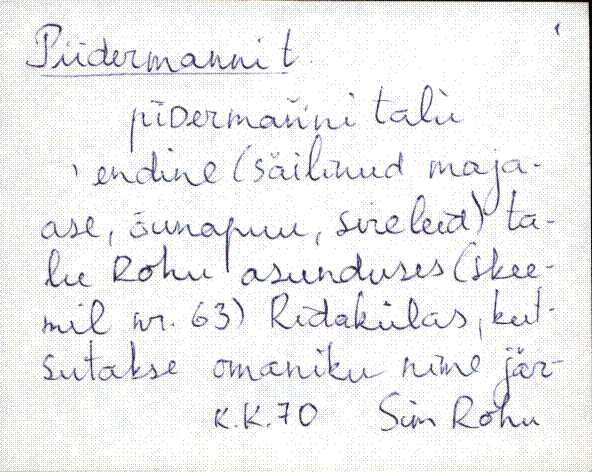 Piidermanni t.
pīDermańni talù
endine (säilinud maja-
ase, õunapuu, sireleid) ta-
lu Rohu asunduses (skee-
mil nr. 63) Ridakülas, kut-
sutakse omaniku nime jär-
K.K.70 Sim Rohu